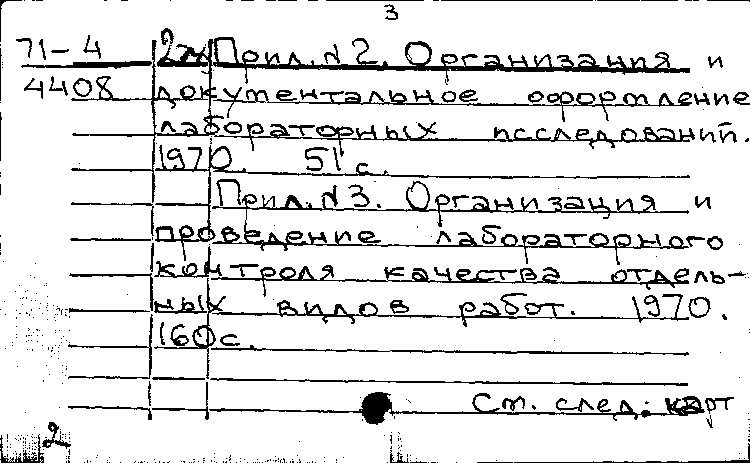 3
71-4 2ж Прил. N 2. Организация и
4408 документальное оформление
лабораторных исследований.
1970. 51 с.
Прил. N 3. Организация и
проведение лабораторного
контроля качества отдель-
ных видов работ. 1970.
160 с.
См. след. карт
2